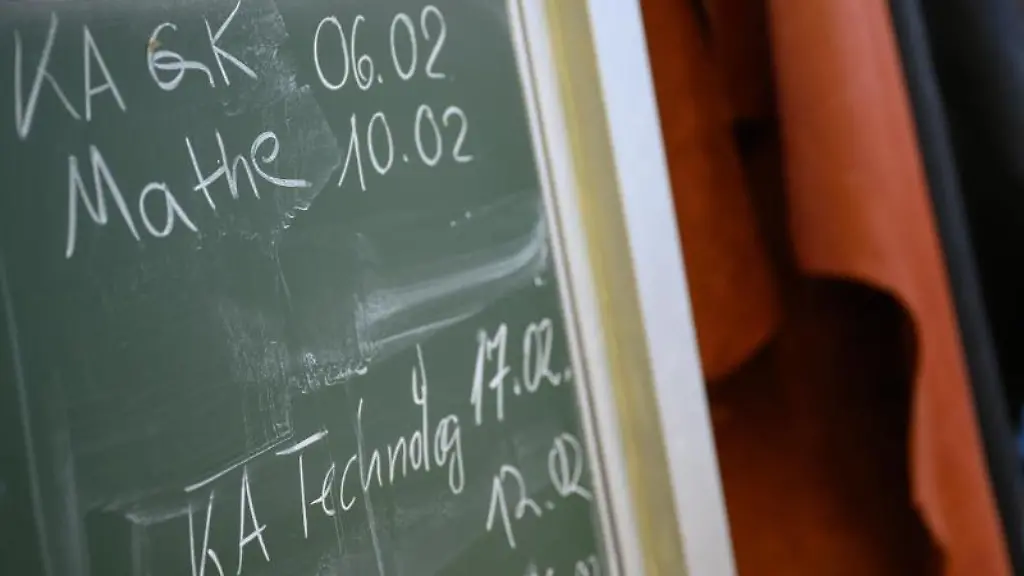 KA GK 06.02
Mathe 10.02
KA Technolog 17.02.
12.02